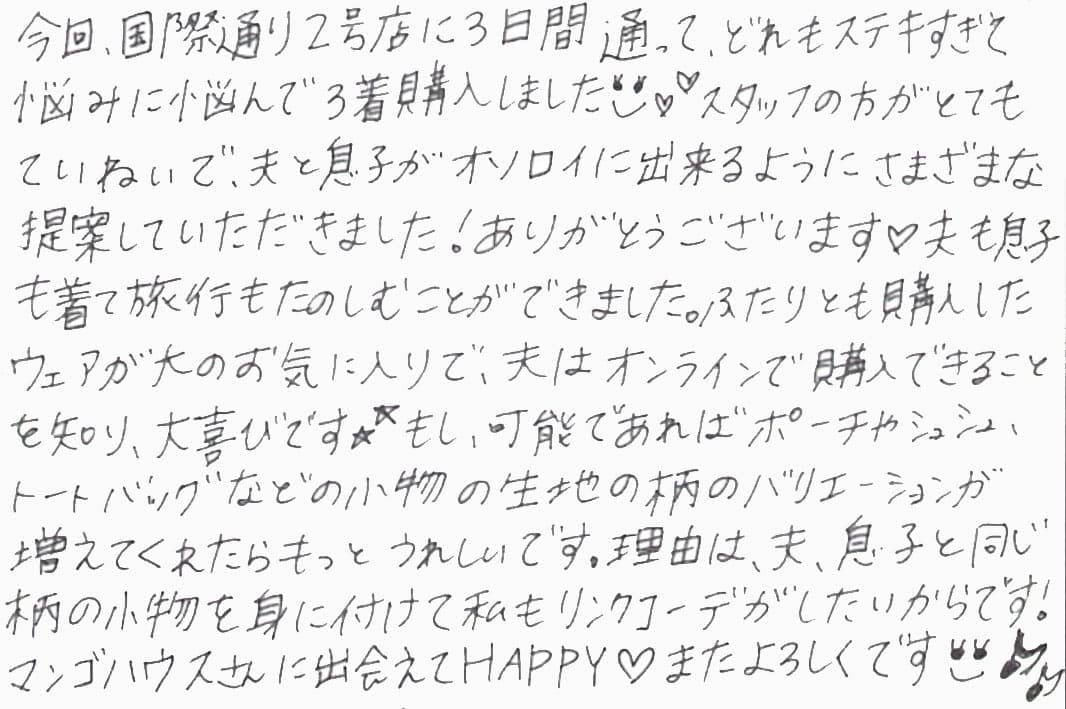 今回、国際通り2号店に3日間通って、どれもステキすぎて
悩みに悩んで3着購入しました♡♡スタッフの方がとても
ていねいで、夫と息子がオソロイに出来るようにさまざまな
提案していただきました！ありがとうございます♡夫も息子
も着て旅行もたのしむことができました。ふたりとも購入した
ウェアが大のお気に入りで、夫はオンラインで購入できること
を知り、大喜びです☆☆もし、可能であればポーチやシュシュ、
トートバッグなどの小物の生地の柄のバリエーションが
増えてくれたらもっとうれしいです。理由は、夫、息子と同じ
柄の小物を身に付けて私もリンクコーデがしたいからです！
マンゴハウスさんに出会えてHAPPY♡またよろしくです♪♪